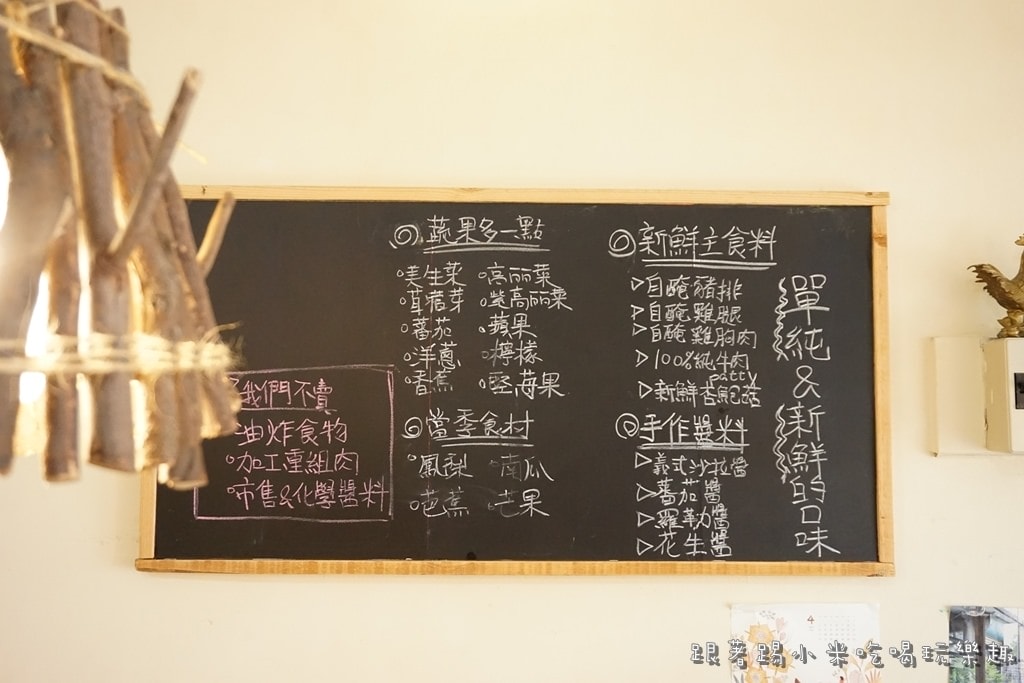 單純&新鮮的口味
新鮮主食料
自醃豬排
自醃雞腿
自醃雞胸肉
100%純牛肉
patty
新鮮香魷
手作醬料
義式沙拉醬
蕃茄醬
羅勒醬
花生醬
蔬果多一點
美生菜 高麗菜
苜蓿芽 紫高麗菜
蕃茄 蘋果
洋蔥 檸檬
香蕉 堅海果
當季食材
鳳梨 南瓜
芭蕉 芒果
我們不賣
油炸食物
加工重組肉
市售&化學醬料
跟著踢小米吃喝玩樂趣